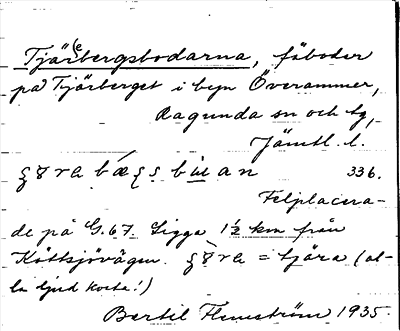 Tjär(e)bergsbodarna, fäboder
på Tjärberget i byn Överammer,
Ragunda sn och tg,
Jämtl. l.
336.
Felplacera-
de på G.67. Ligga 1½ km från
Köttsjövägen. = tjära (al-
la ljud korta!)
Bertil Flemström 1935.